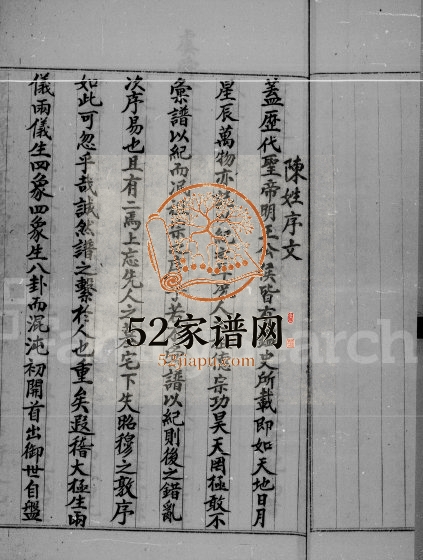 陳姓序文
蓋歷代聖帝明王公侯皆有 史所載即如天地日月
星辰萬物亦 以紀之 人 德宗功昊天罔極敢不
彙譜以紀而 宗之序 若 譜以紀則後之錯亂
次序易也且有二焉上忘先人之 宅下失昭穆之敦序
如此可忽乎哉誠然譜之繫於人也重矣遐稽太極生兩
儀兩儀生四象四象生八卦而混沌初開首出御世自盤
52家谱网
52jiapu.com